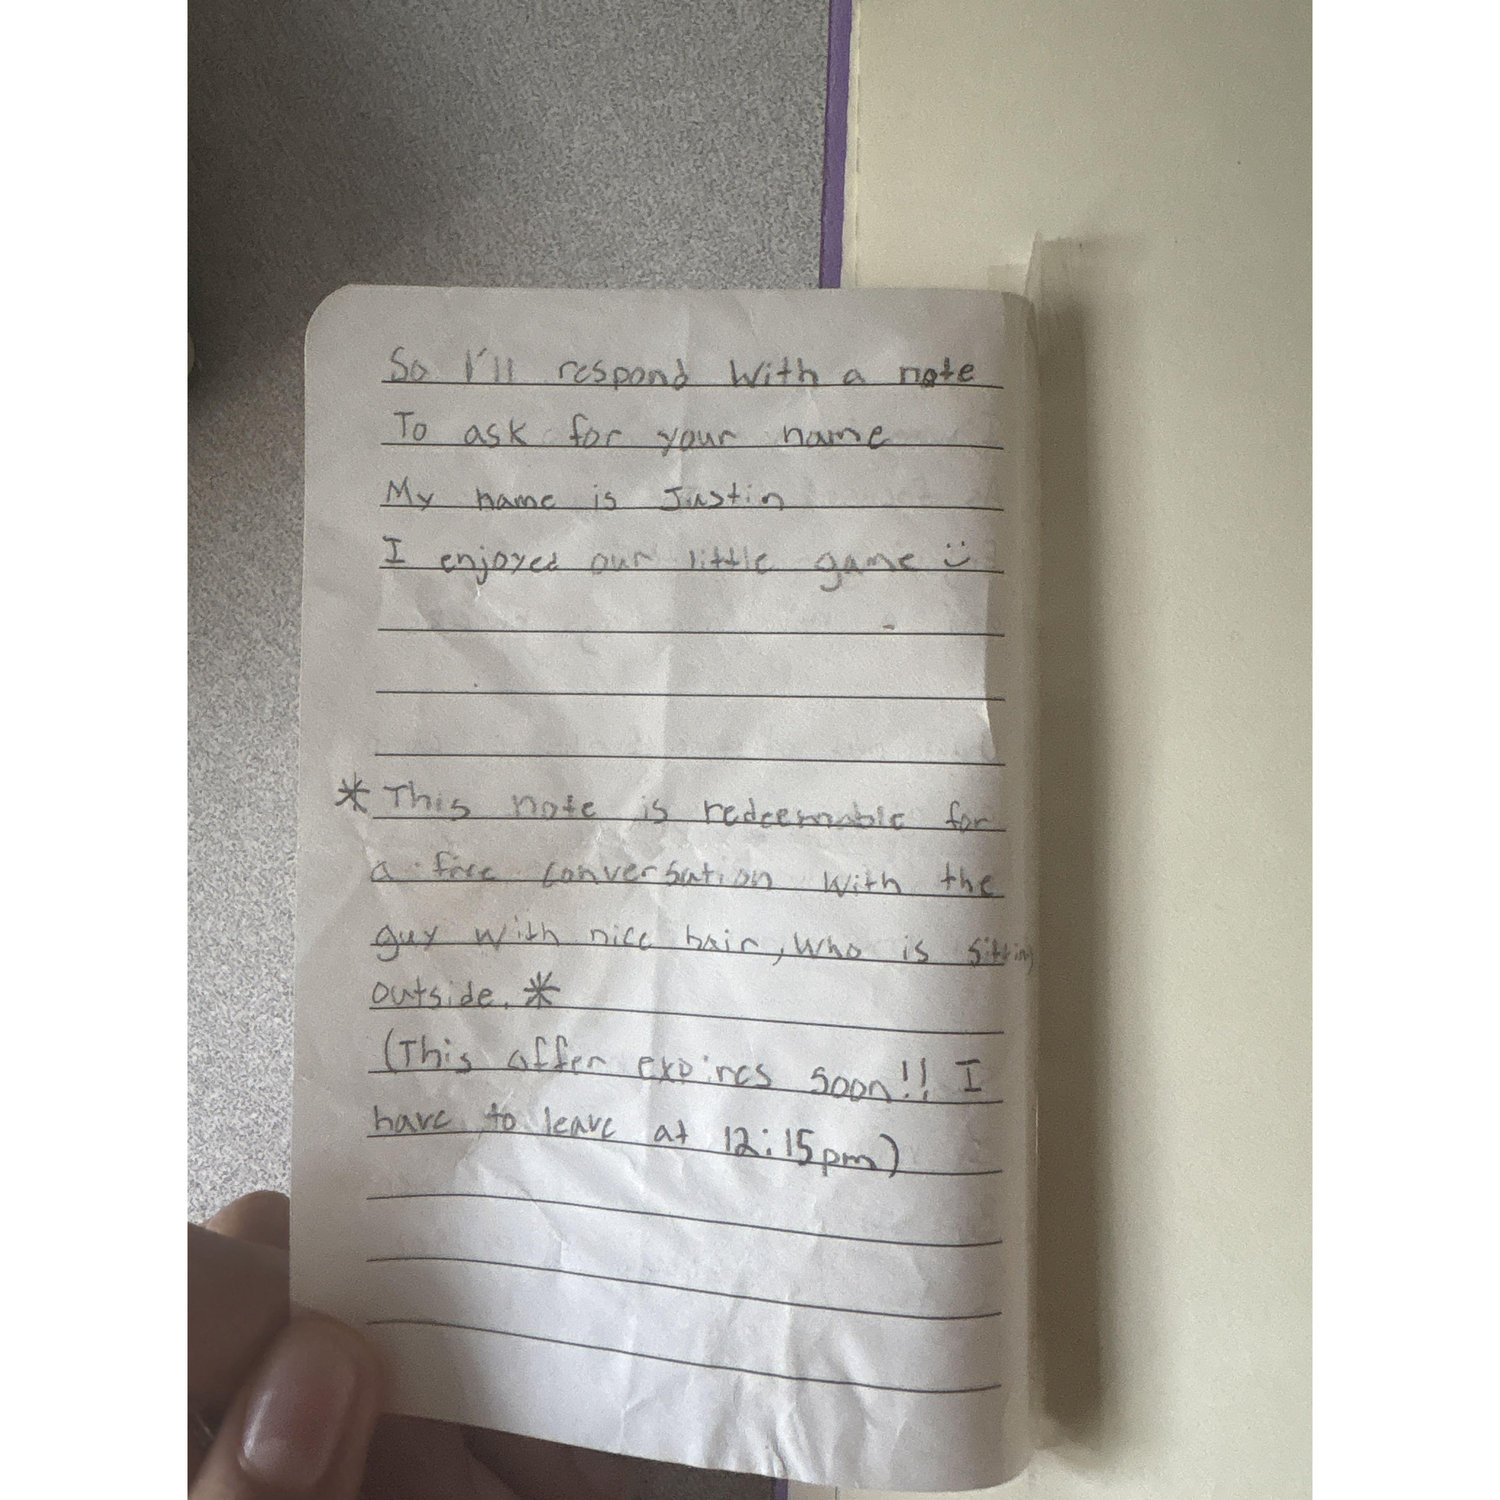 So I'll respond with a note
To ask for your name
My name is Justin
I enjoyed our little game :)
* This note is redeemable for
a free conversation with the
guy with nice hair, who is sitting
outside. *
(This offer expires soon!! I
have to leave at 12:15pm)